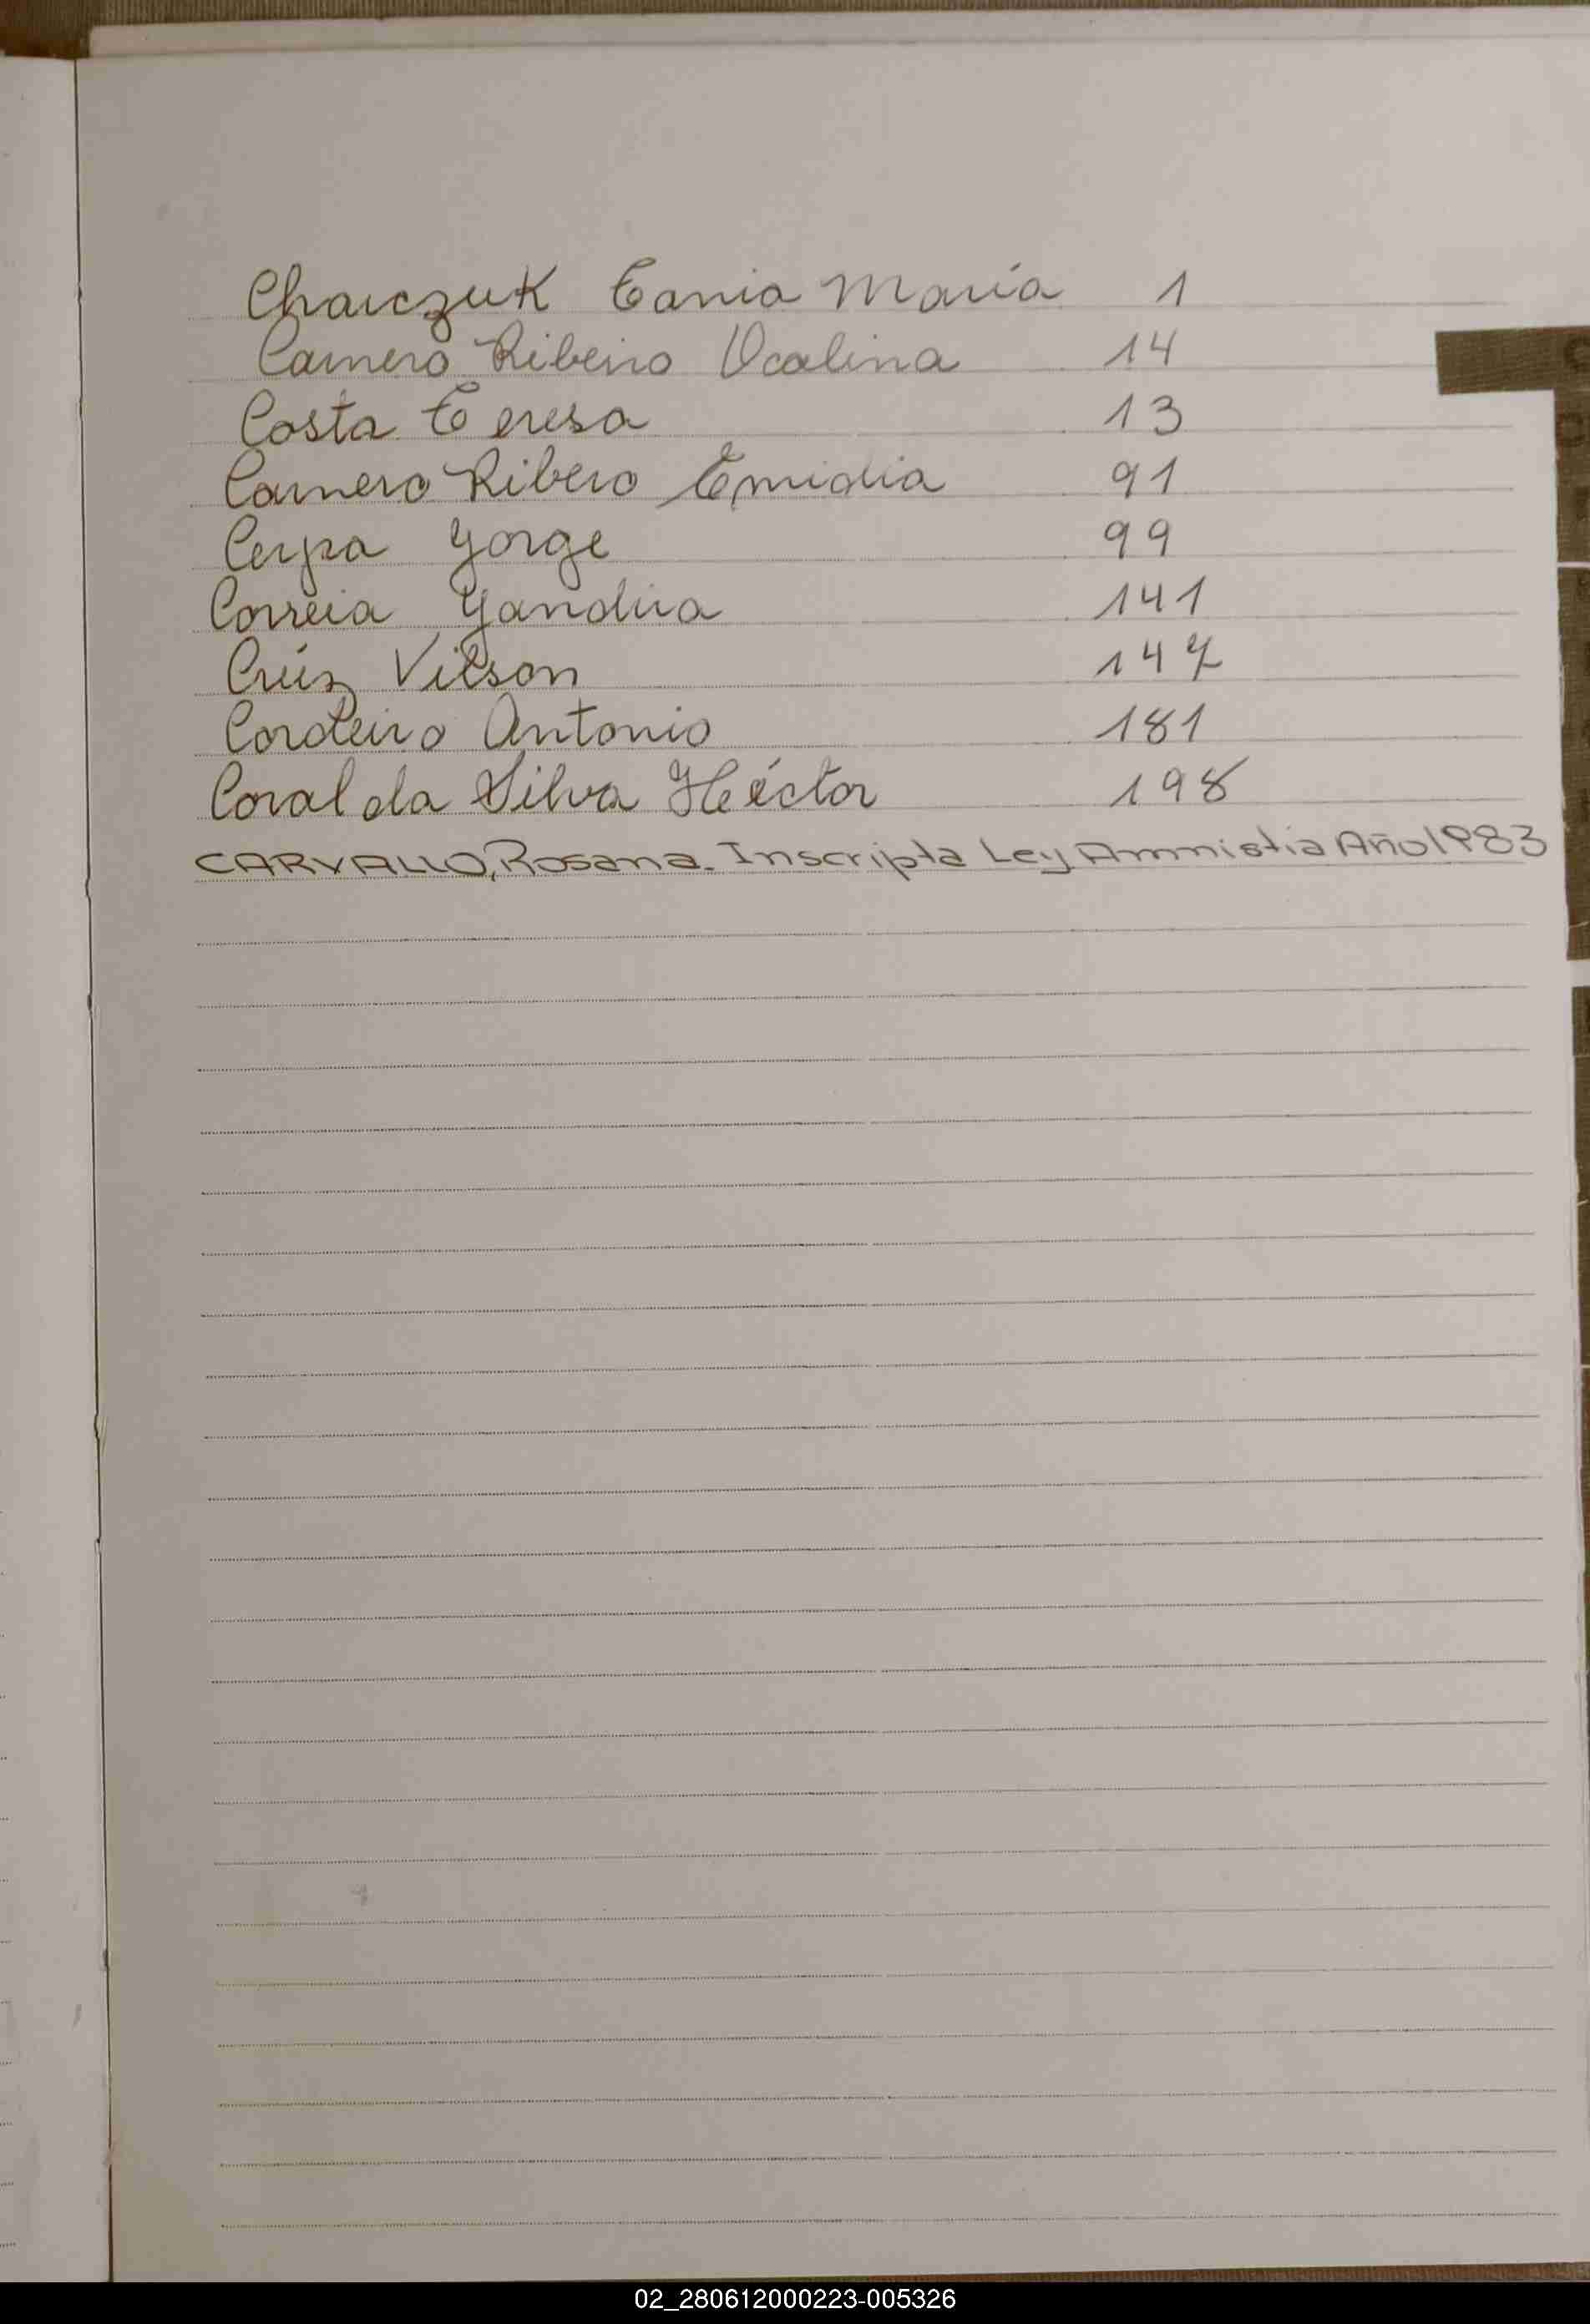 Charczuk Tania María 1
Carnero Ribeiro Ocalina 14
Costa Teresa 13
Carnero Ribero Emidia 91
Cerpa Jorge 99
Correia Yandira 141
Crúz Vilson 147
Cordeiro Antonio 181
Coral da Silva Héctor 198
CARVALLO, Rosana. Inscripta Ley Amnistia Año 1983
02_280612000223-005326